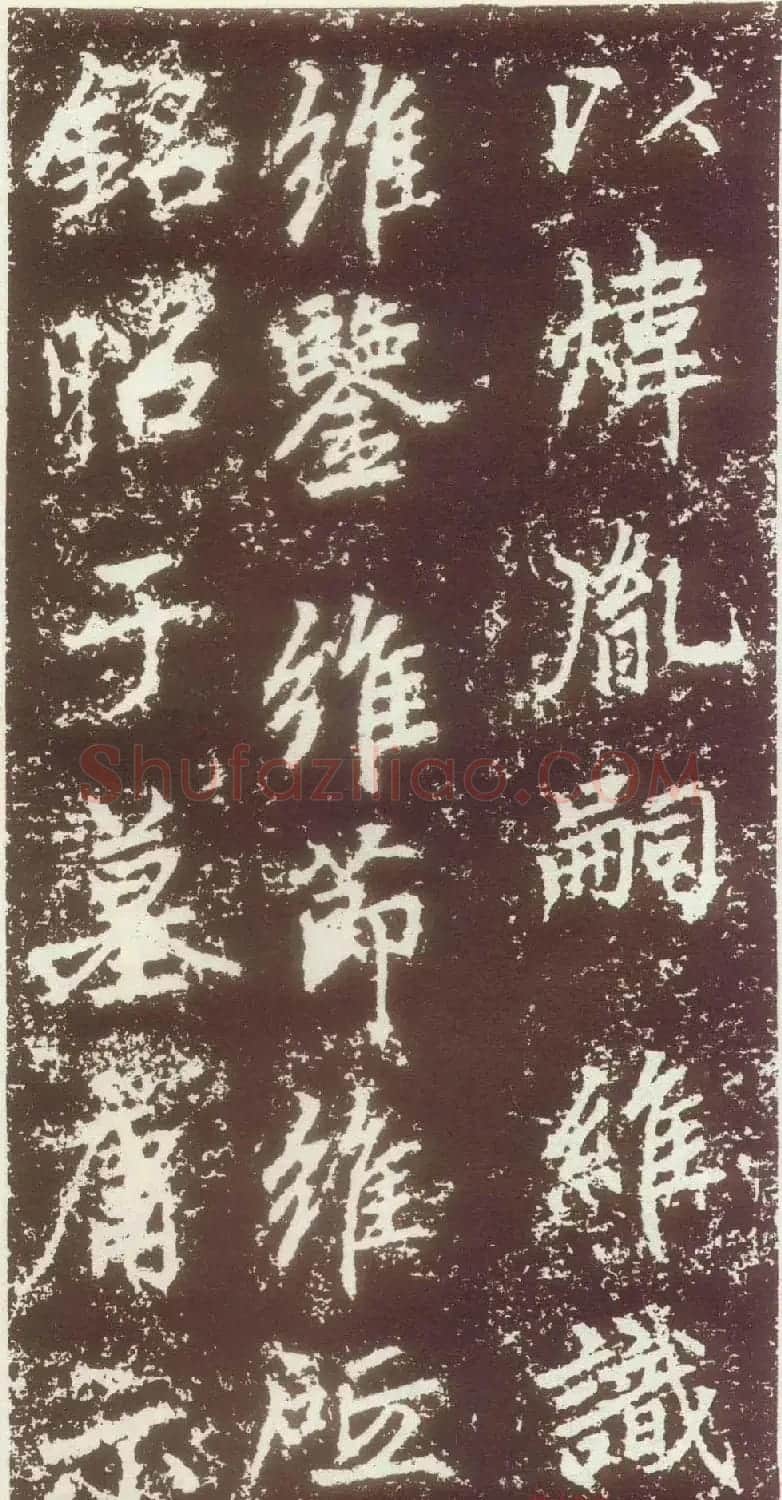 以煒胤嗣維識
維鑒維節維
銘昭于墓庸示
Shufaziliao.COM